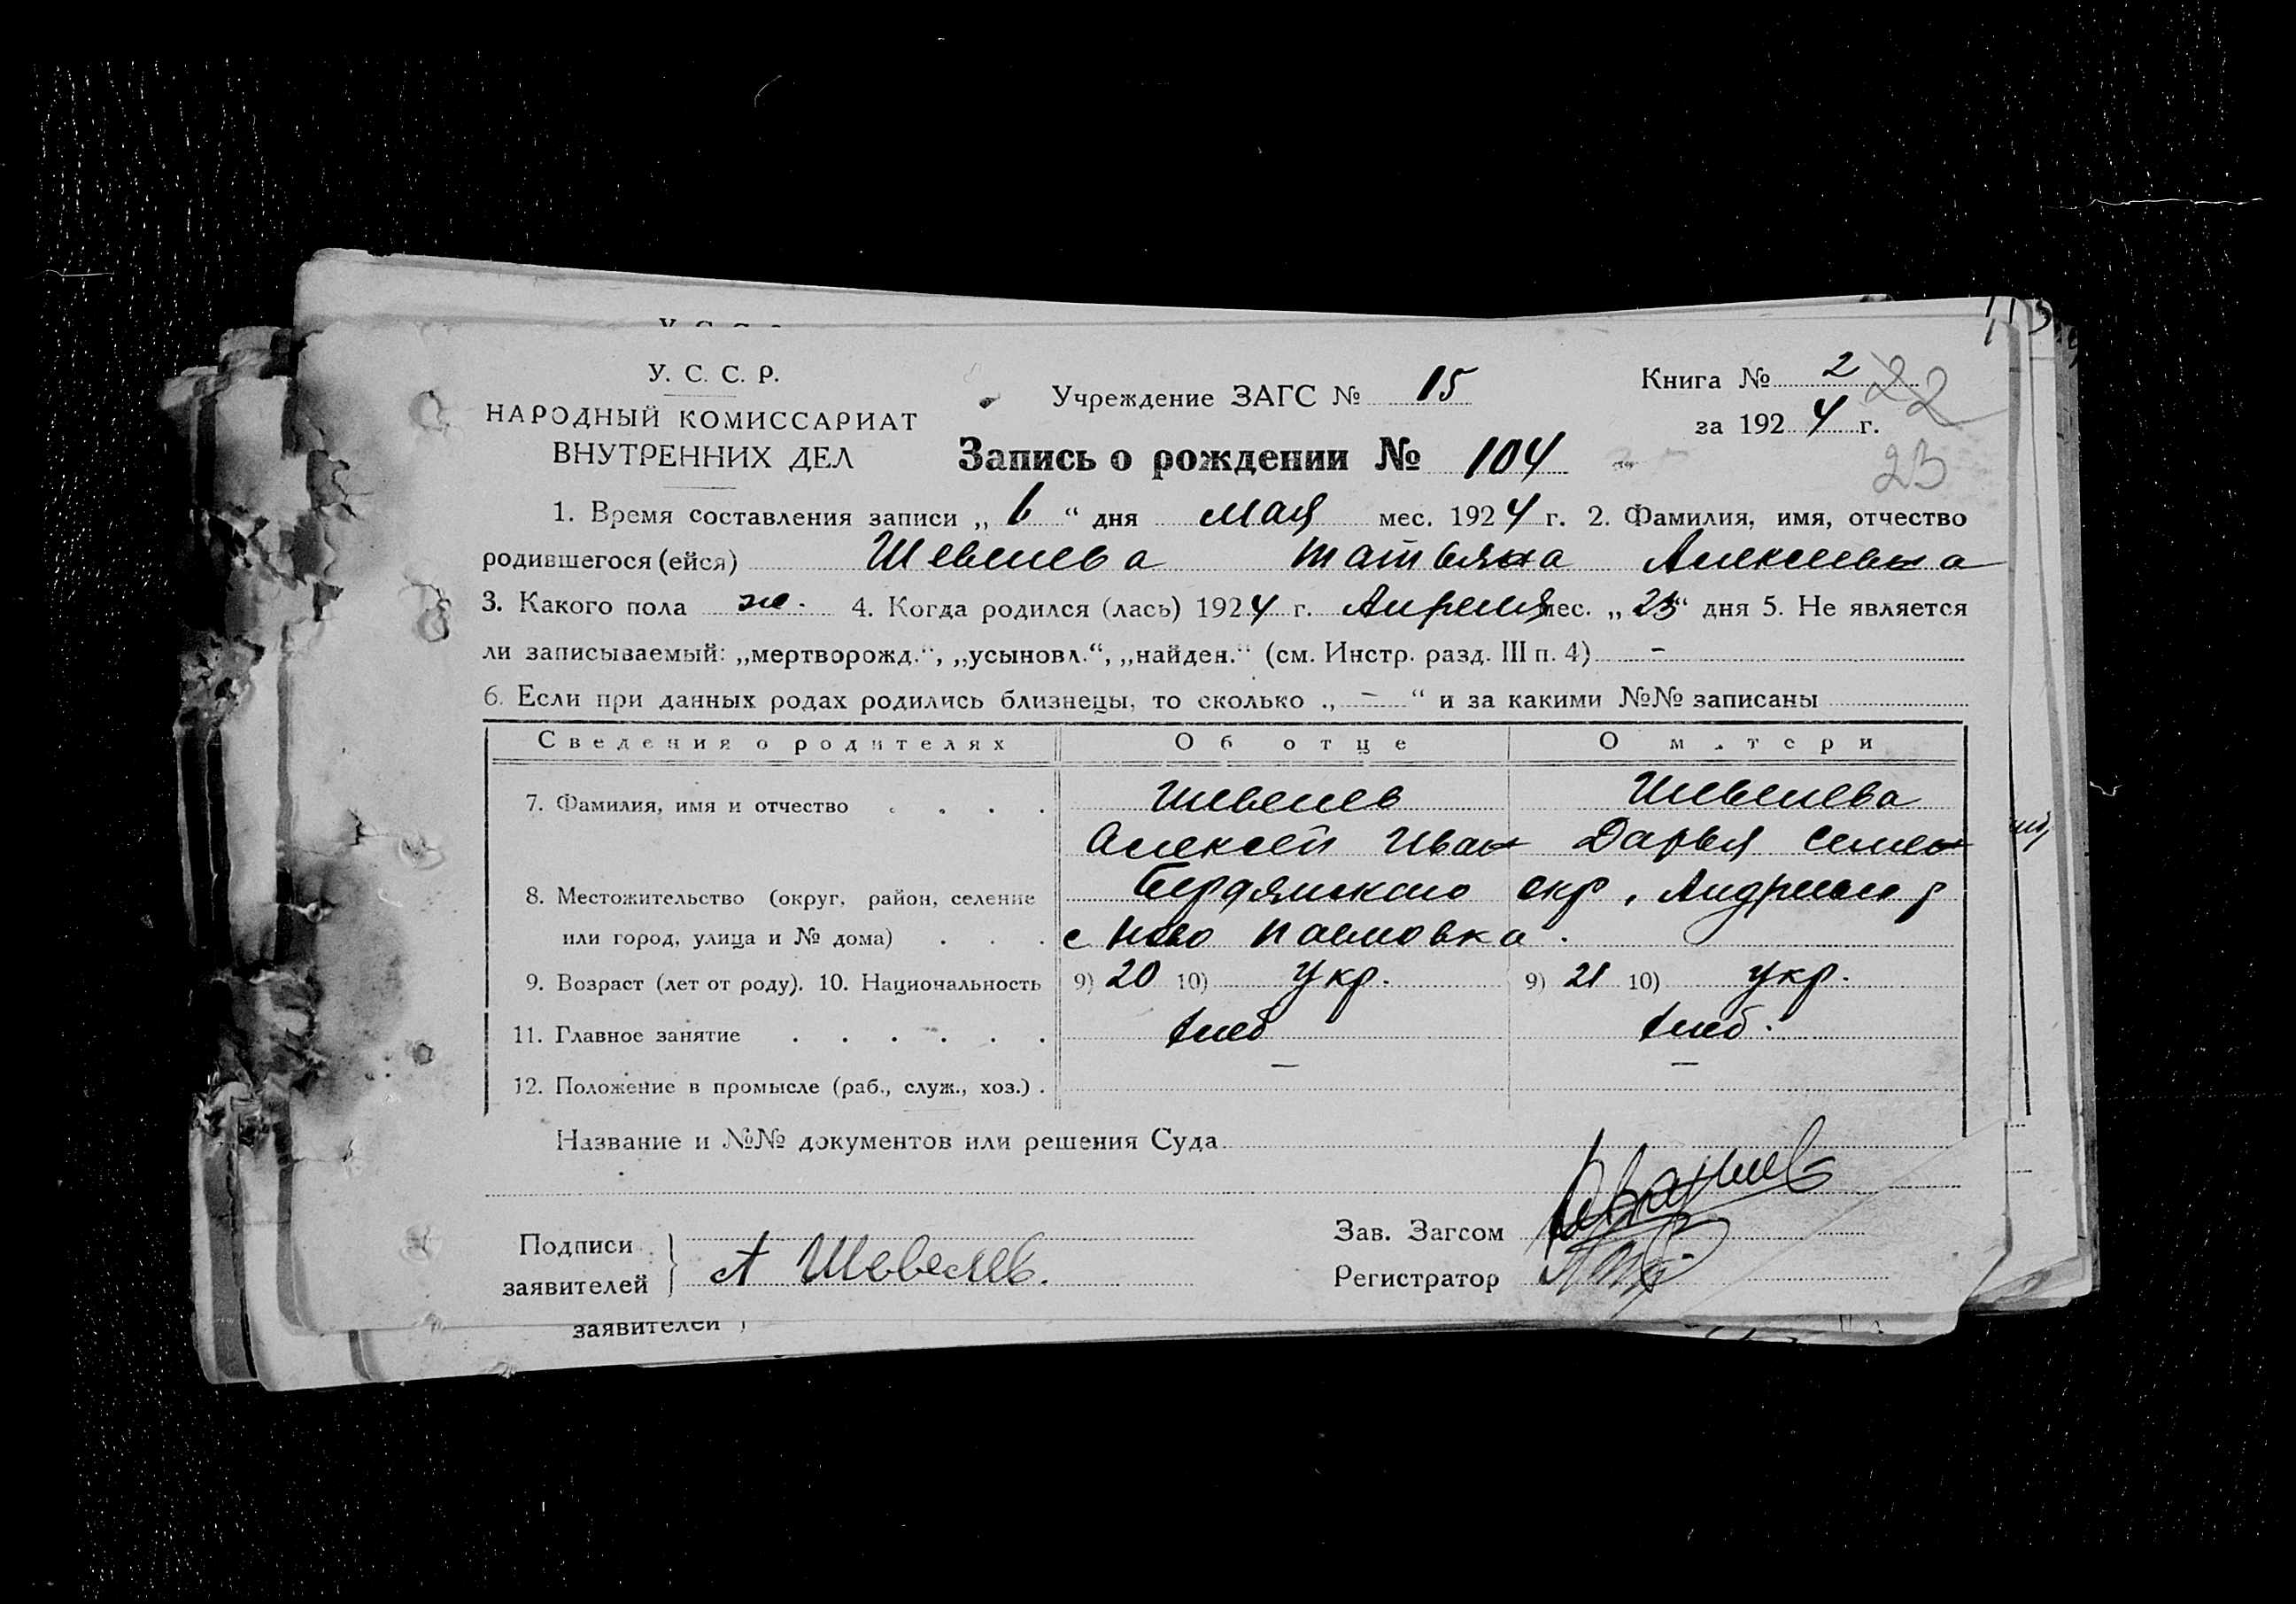 У. С. С. Р.
НАРОДНЫЙ КОМИССАРИАТ
ВНУТРЕННИХ ДЕЛ
Учреждение ЗАГС № 15
Книга № 2 22
за 1924 г.
23
Запись о рождении № 104
1. Время составления записи „ 6 “ дня мая мес. 1924 г. 2. Фамилия, имя, отчество
родившегося (ейся) Шевелева Татьяна Алексеевна
3. Какого пола ж. 4. Когда родился (лась) 1924 г. Апреля мес. „ 23 “ дня 5. Не является
ли записываемый: „мертворожд.“, „усыновл.“, „найден.“ (см. Инстр. разд. III п. 4) –
6. Если при данных родах родились близнецы, то сколько „ – “ и за какими №№ записаны
Сведения о родителях Об отце О матери
7. Фамилия, имя и отчество Шевелев Шевелева
Алексей Иван Дарья Семен
8. Местожительство (округ, район, селение Бердянского окр, Андреев р
или город, улица и № дома) с Ново Павловка.
9. Возраст (лет от роду). 10. Национальность 9) 20 10) Укр. 9) 21 10) Укр.
11. Главное занятие хлеб хлеб.
12. Положение в промысле (раб., служ., хоз.) – –
Название и №№ документов или решения Суда
Подписи
заявителей А Шевелев.
Зав. Загсом
Регистратор
заявителей